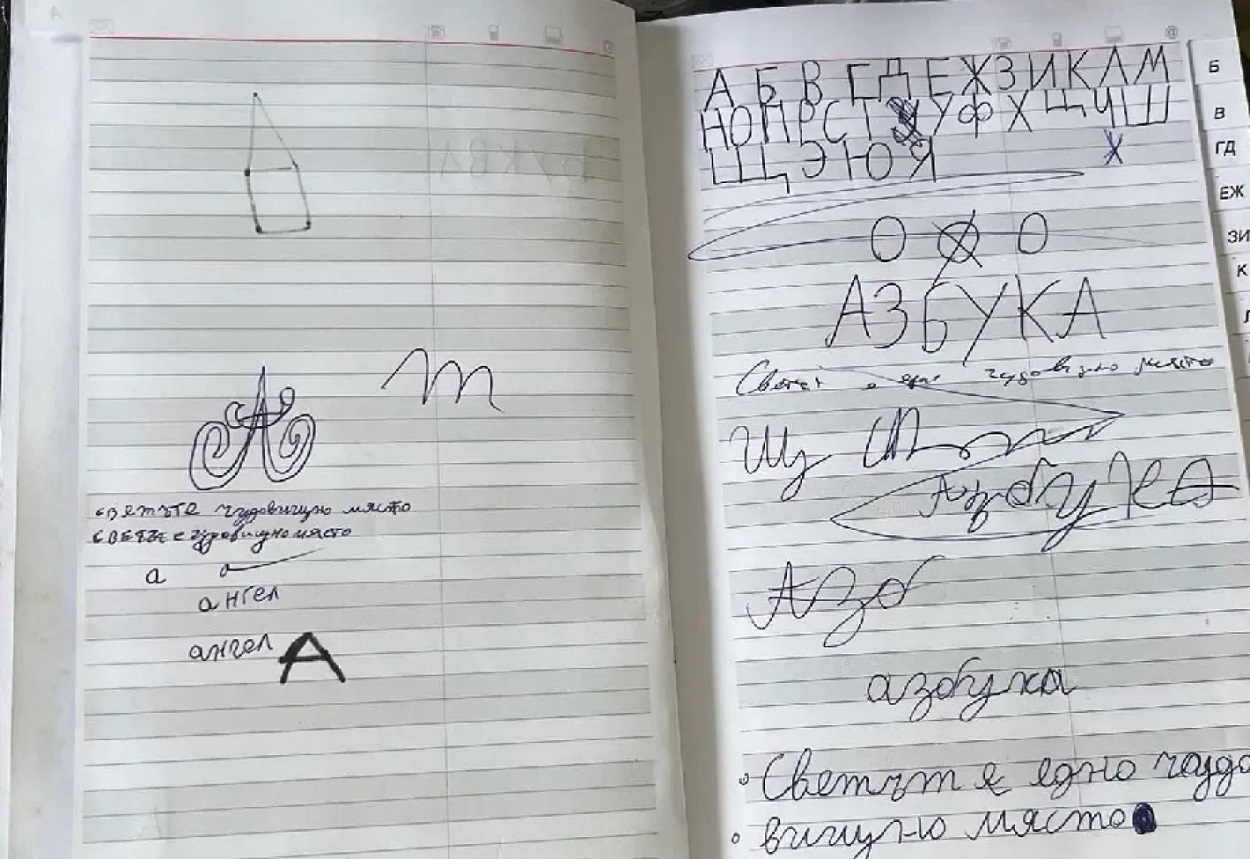 m
А
светъте чудовищно място
светъте чудовищно място
а а
ангел
ангел А
А Б В Г Д Е Ж З И К Л М
Н О П Р С Т У Ф Х Ц Ч Ш
Щ Э Ю Я Х
О О
АЗБУКА
Светът е едно чудовищно място
Щ
Азбука
Азб
азбука
Светът е едно чудо
вищно място
Б
В
ГД
ЕЖ
ЗИ
К
Л